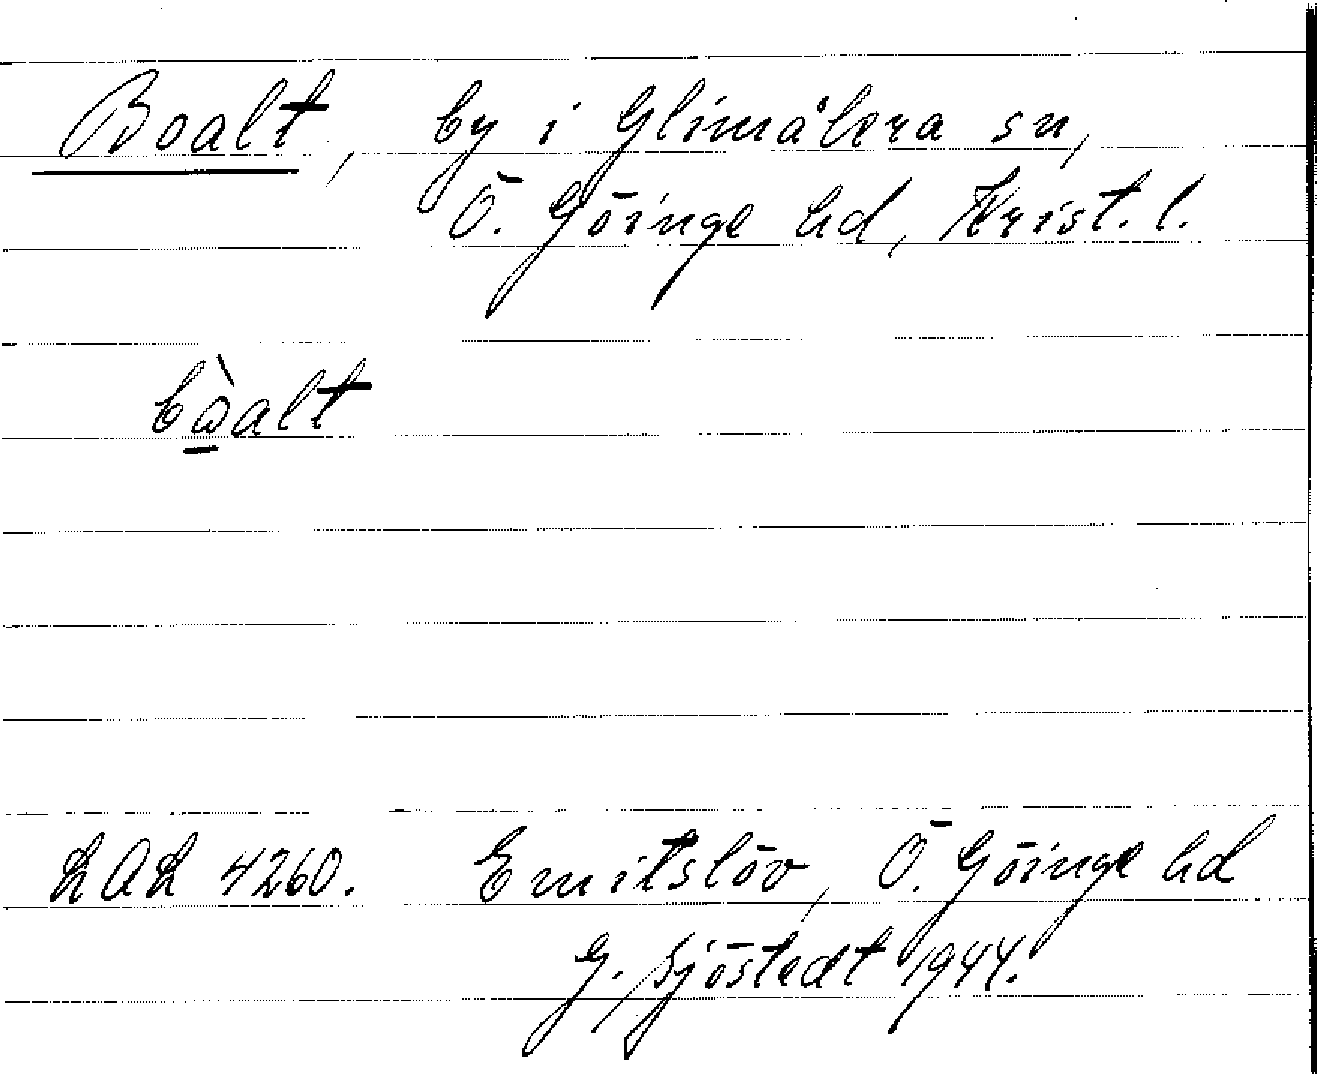 Boalt, by i Glimåkra sn,
Ö. Göinge hd, Krist. l.
bɷ̀alt
LAL 4260. Emitslöv, Ö. Göinge hd
G. Sjöstedt 1944.